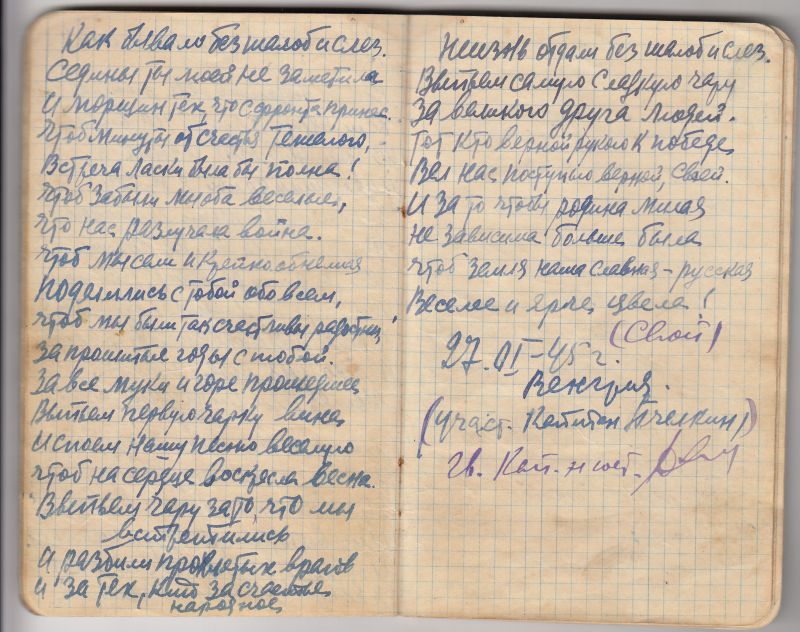 Как бывало без жалоб и слез.
Седины ты моей не заметила
И морщин тех, что с фронта принес.
Чтоб минуты от счастья тяжелого,
Встреча ласки была бы полна!
Чтоб забыли мы оба веселые,
Что нас разлучала война.
Чтоб мы сели и крепко обнимая
Поделились с тобой обо всем,
Чтоб мы были так счастливы радостны!
За прошитые годы с тобой.
За все муки и горе прошедшее
Выпьем первую чарку вина
И споем нашу песню веселую
Чтоб на сердце воскресла весна.
Выпьем чару за то, что мы
встретились
И разбили проклятых врагов
и за тех, кто за счастье
народное
Жизнь отдали без жалоб и слез.
Выпьем самую сладкую чару
За великого друга людей.
Тот кто верной рукою к победе,
Вел нас поступью верной, своей.
И за то чтобы родина милая
Не зависима больше была
Чтоб земля наша славная - русская
Веселее и ярче цвела!
(Свой)
27.VI-45 г.
Венгрия.
(участ. Капитан Пчелкин)
гв. Кап.